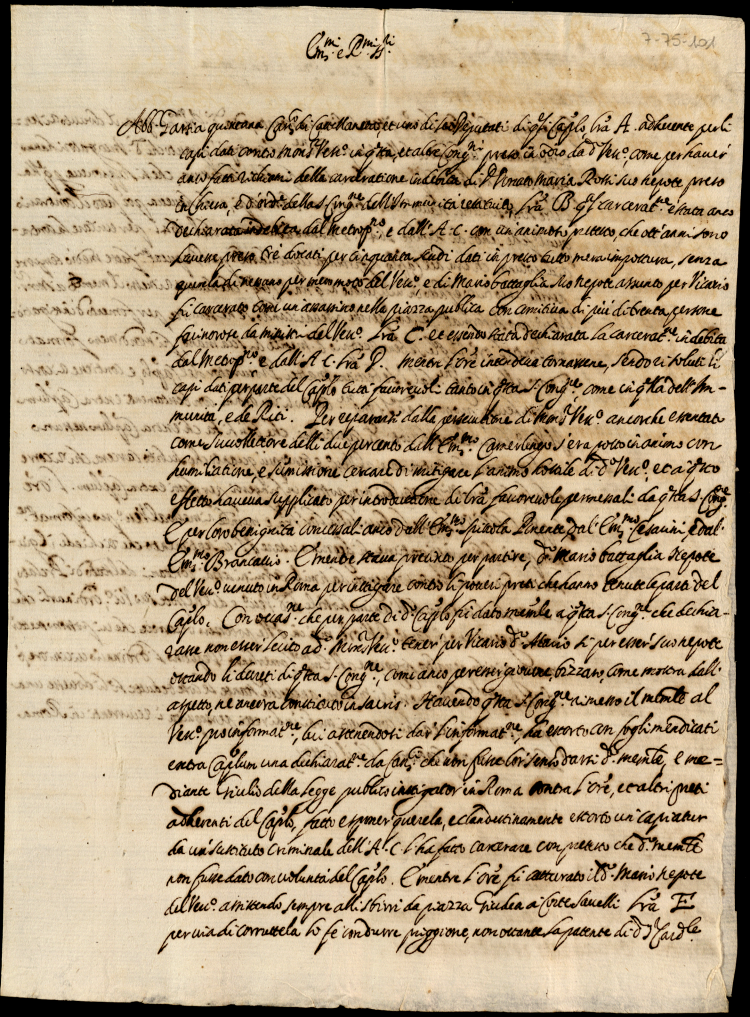 7-75-101
Em.mi e R.mi SS.ri
Abb. quintana Can.co di Castellaneta, et uno di Deputati di q.sto Cap.lo, l'ra A. adherente per li
capi dati contro Mons.r Vesc.o in q.sta, et altre Cong.ni preso in odio da d.o Vesc.o, come per haver
anco fatti richiami della carceratione indebita di D. Donato Maria Rossi suo nepote preso
in Chiesa, e d'ord.e della S. Cong.ne dell'Immunità l'ra B. q.l carcerat.ne è stata anco
dichiarata indebita dal Metrop.no, e dall'A. C. con un pretesto, che ott'anni sono
havesse preso tre docati per cinquanta scudi dati in presto tutto mera impostura, senza
querela di nessuno per mero moto del Vesc.o, e di Mario battaglia suo nepote assunto per Vicario
fu carcerato com'un assassino nella piazza publica con comitiva di più di trenta persone
facinorose da ministri del Vesc.o l'ra C. et essendo stata dechiarata la carcerat.ne indebita
dal Metrop.no e dall'A. C. l'ra D. mentre l'Ore intendeva tornarsene, sendo risoluti li
capi dati per parte del Cap.lo tutti favorevoli tanto in q.sta S. Cong.ne, come in q.lla dell'Im-
munità, e de Riti. Per repararsi dalla persecutione di Mons.r Vesc.o ancorche essentato
come succollettore delli due per cento dall'Em.mo Camerlengo s'era posto in animo con
humiliatione, e sumissione cercar di mitigare l'animo hostile di d.o Vesc.o, et a q.sto
effetto haveva supplicato per introdutione di l'ra favorevole permessali da q.sta S. Cong.ne
E per loro benignità concessali anco dall'Em.mo Spinola Pimentel dal Em.mo Cesarini, e dal
Em.mo Brancaccio. E mentre stava precinto per partire, d.o Mario battaglia nepote
del Vesc.o venuto in Roma per instigare contro li poveri preti che hanno tenute le parti del
Cap.lo. Con occas.ne che per parte di d.o Cap.lo fu dato mem.le a q.sta S. Cong.ne che dechia-
rasse non esser lecito a d.o Mons.r Vesc.o tener per Vicario d.o Mario si per esser suo nepote
ostando li decreti di q.sta S. Cong.ne, com'anco per esser giovine, bizzaro, come mostra dall'
aspetto, ne ancora constituto in sacris. Havendo q.sta S. Cong.ne rimesso il mem.le al
Vesc.o pro informat.ne, lui astenendosi dar l'informat.ne, ha estorto con fogli mendicati
extra Cap.lum una dichiarat.ne da Can.ci che non fusse lor senso darsi d.o mem.le, e me-
diante Giulio della Legge publico instigator in Roma contra l'Ore, et altri preti
adherenti del Cap.lo, fatto esponer querela, e clandestinamente estorto un capiatur
da un sustituto criminale dell'A. C. l'ha fatto carcerare con pretesto che d.o mem.le
non fusse dato con voluntà del Cap.lo. E mentre l'Ore fu catturato il d.o Mario nepote
del Vesc.o assistendo sempre alli sbirri da piazza Giudea a Corte Savelli l'ra E
per via di corruttela lo fe condurre priggione, non ostante la patente di d.o S.r Card.le